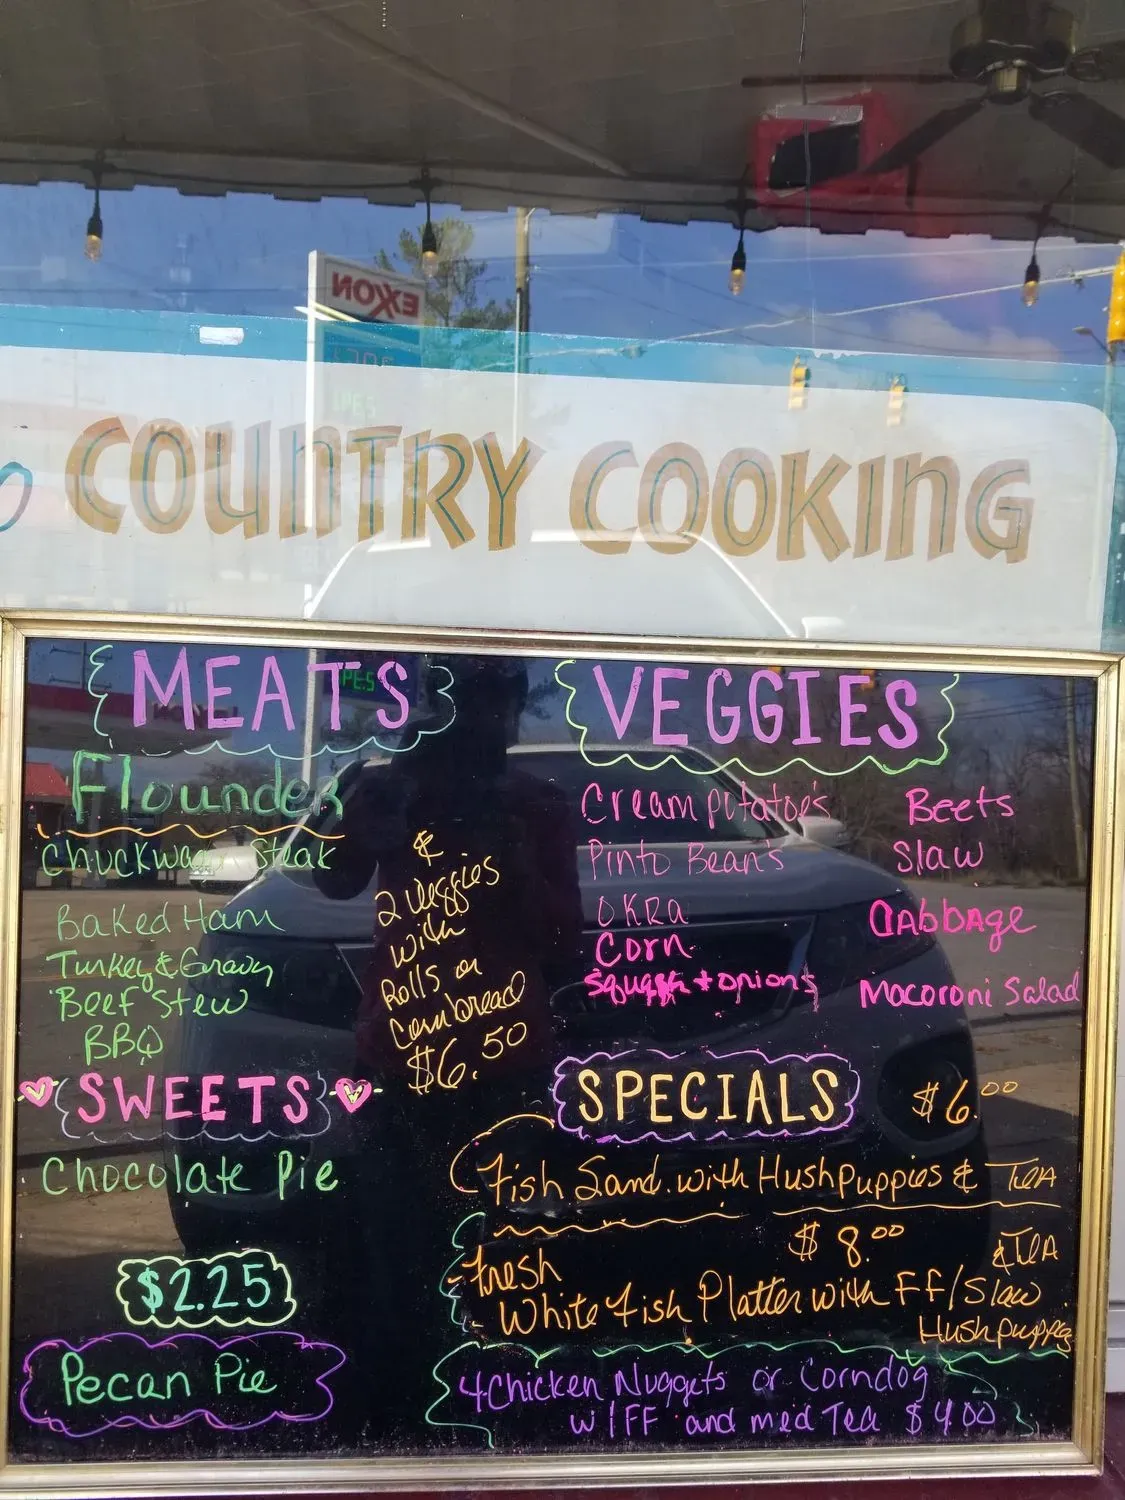 EXXON
COUNTRY COOKING
MEATS
Flounder
Chuckwagon Steak
Baked Ham
Turkey & Gravy
Beef Stew
BBQ
&
2 Veggies
with
Rolls or
Cornbread
$6.50
VEGGIES
Cream Potatoe's
Pinto Bean's
OKRA
Corn
Squash + onions
Beets
Slaw
CABBAGE
Macoroni Salad
SWEETS
Chocolate Pie
$2.25
Pecan Pie
SPECIALS
$6.00
Fish Sand. with Hushpuppies & TEA
$8.00
& TEA
Fresh
White Fish Platter with FF/Slaw
Hushpuppies
4 Chicken Nuggets or Corndog
w/FF and med Tea $4.00